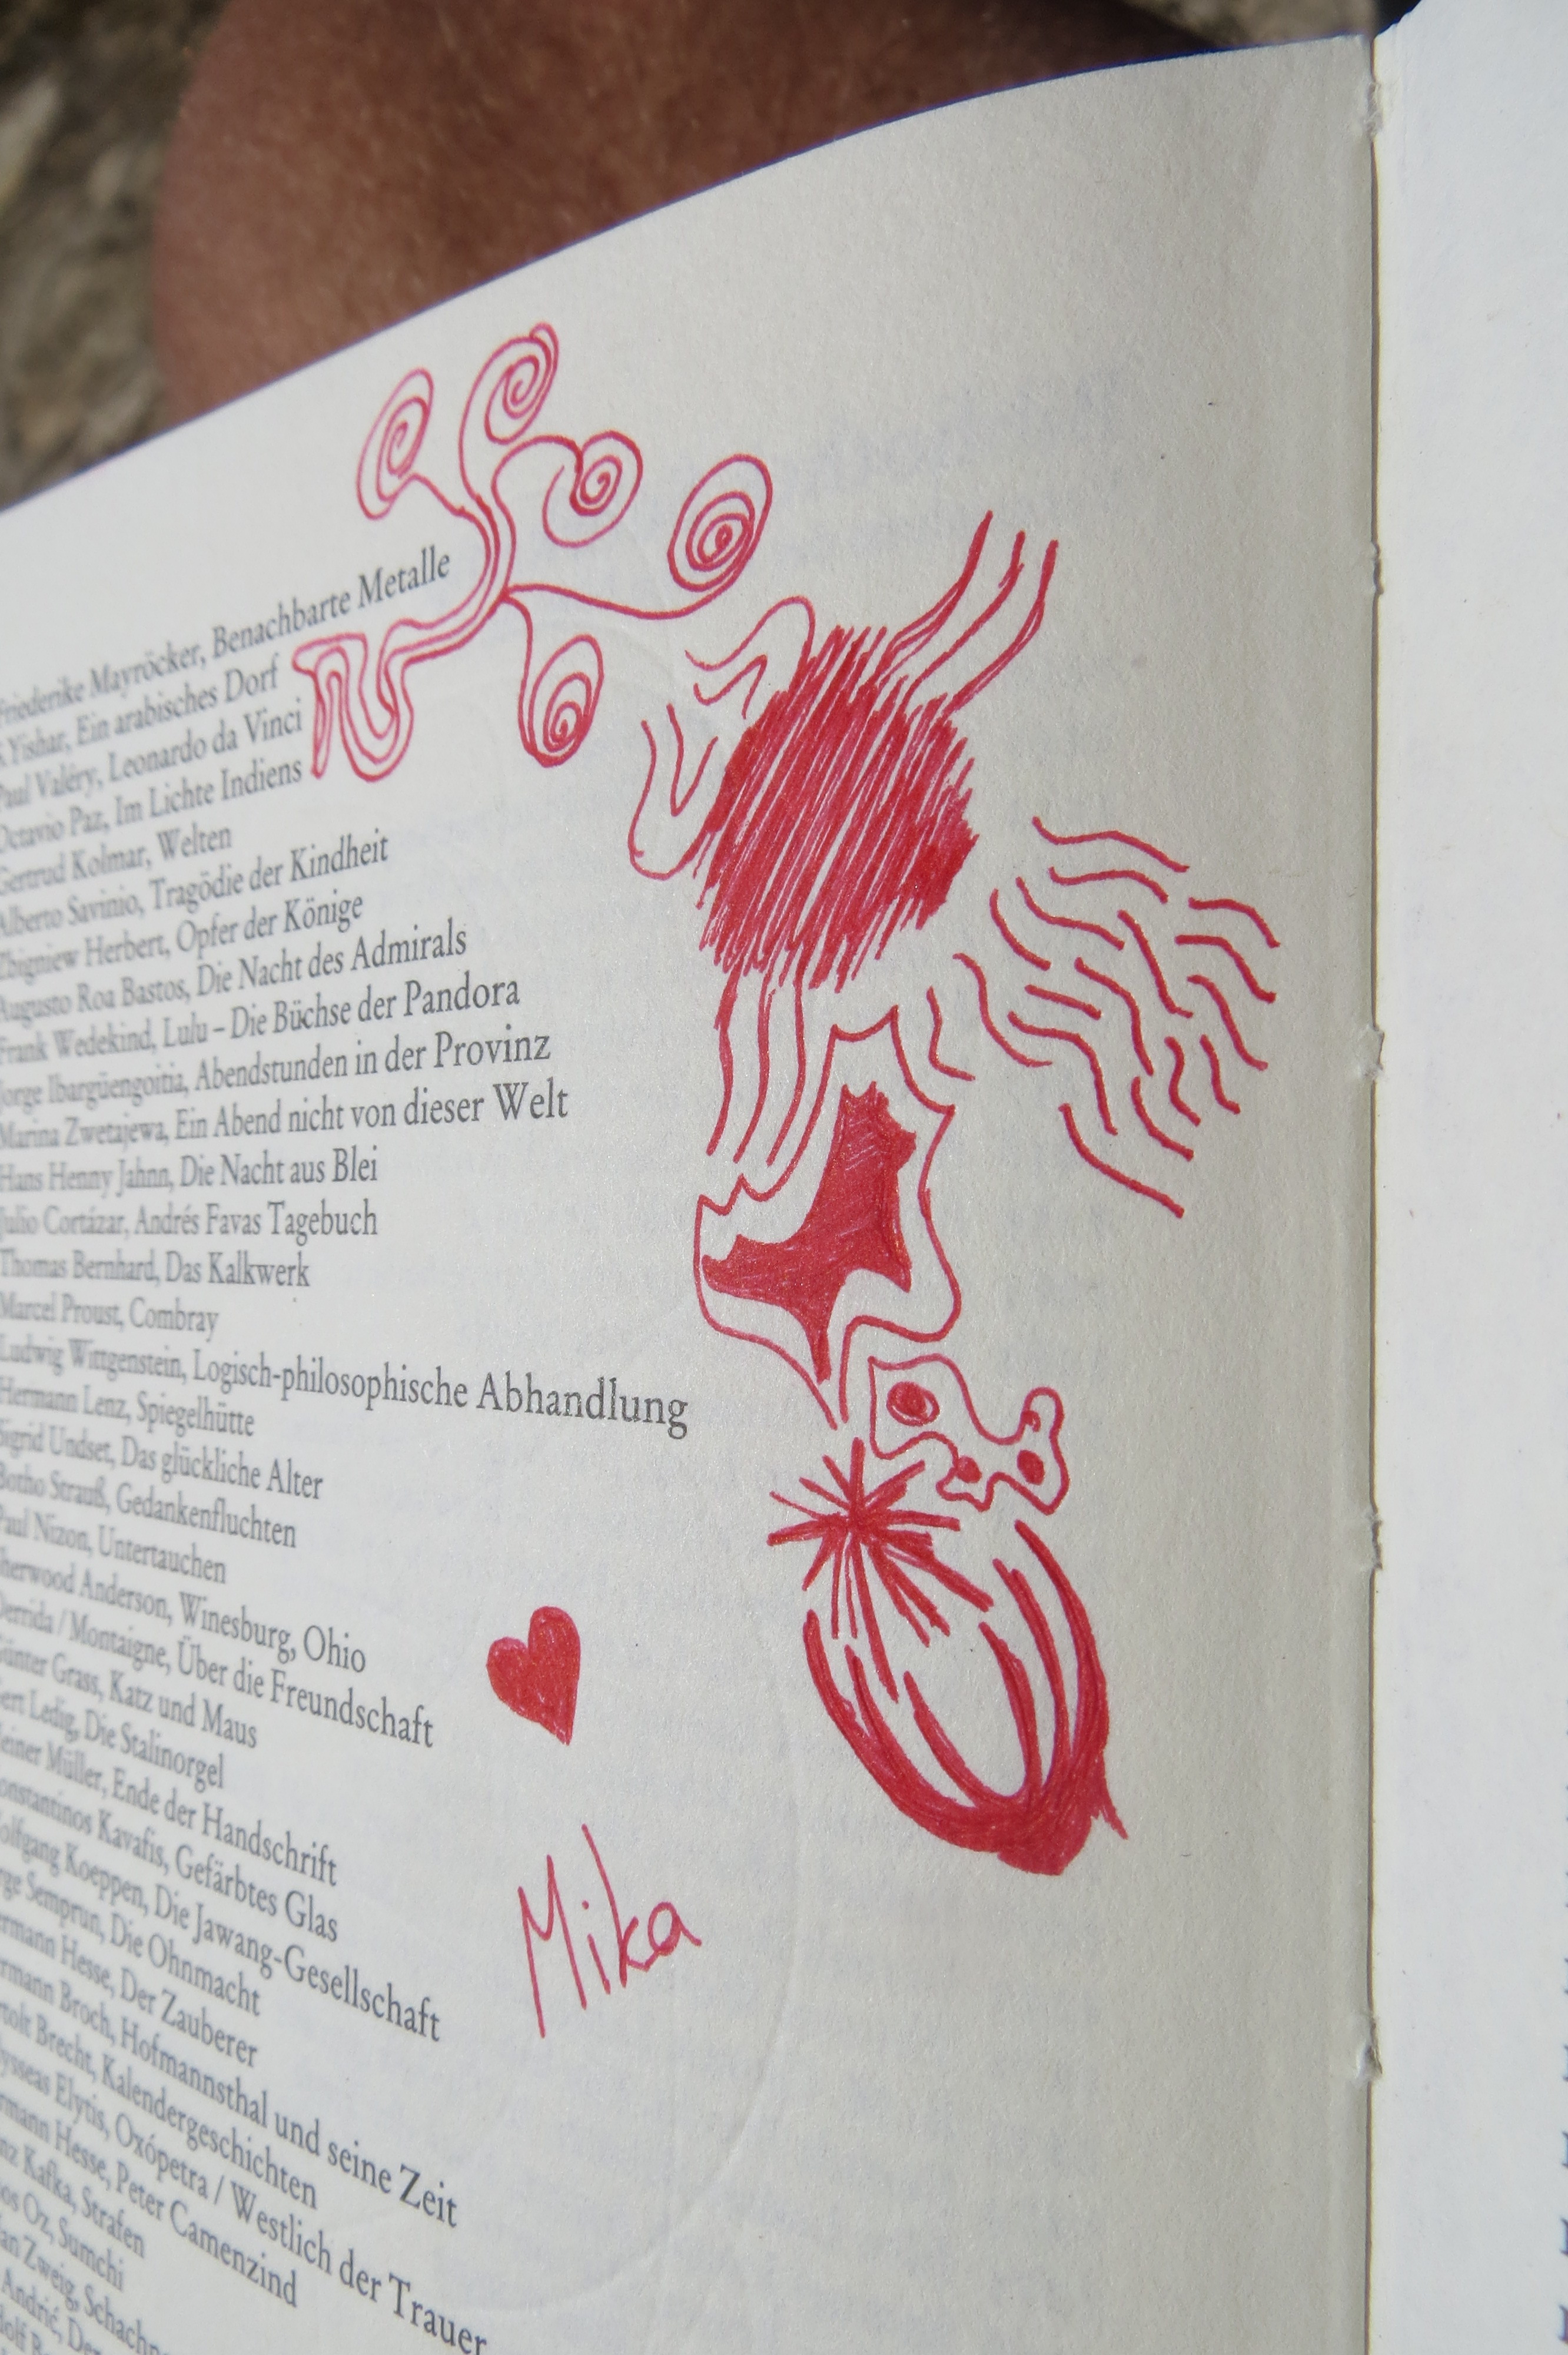 Friederike Mayröcker, Benachbarte Metalle
Yishar, Ein arabisches Dorf
Paul Valéry, Leonardo da Vinci
Octavio Paz, Im Lichte Indiens
Gertrud Kolmar, Welten
Alberto Savinio, Tragödie der Kindheit
Zbigniew Herbert, Opfer der Könige
Augusto Roa Bastos, Die Nacht des Admirals
Frank Wedekind, Lulu – Die Büchse der Pandora
Jorge Ibargüengoitia, Abendstunden in der Provinz
Marina Zwetajewa, Ein Abend nicht von dieser Welt
Hans Henny Jahnn, Die Nacht aus Blei
Julio Cortázar, Andrés Favas Tagebuch
Thomas Bernhard, Das Kalkwerk
Marcel Proust, Combray
Ludwig Wittgenstein, Logisch-philosophische Abhandlung
Hermann Lenz, Spiegelhütte
Sigrid Undset, Das glückliche Alter
Botho Strauß, Gedankenfluchten
Paul Nizon, Untertauchen
Sherwood Anderson, Winesburg, Ohio
Derrida / Montaigne, Über die Freundschaft
Günter Grass, Katz und Maus
Gert Ledig, Die Stalinorgel
Heiner Müller, Ende der Handschrift
Konstantinos Kavafis, Gefärbtes Glas
Wolfgang Koeppen, Die Jawang-Gesellschaft
rge Semprun, Die Ohnmacht
ermann Hesse, Der Zauberer
rmann Broch, Hofmannsthal und seine Zeit
rtolt Brecht, Kalendergeschichten
ysseas Elytis, Oxópetra / Westlich der Trauer
rmann Hesse, Peter Camenzind
nz Kafka, Strafen
os Oz, Sumchi
an Zweig, Schachn
Andrić, Der
Mika